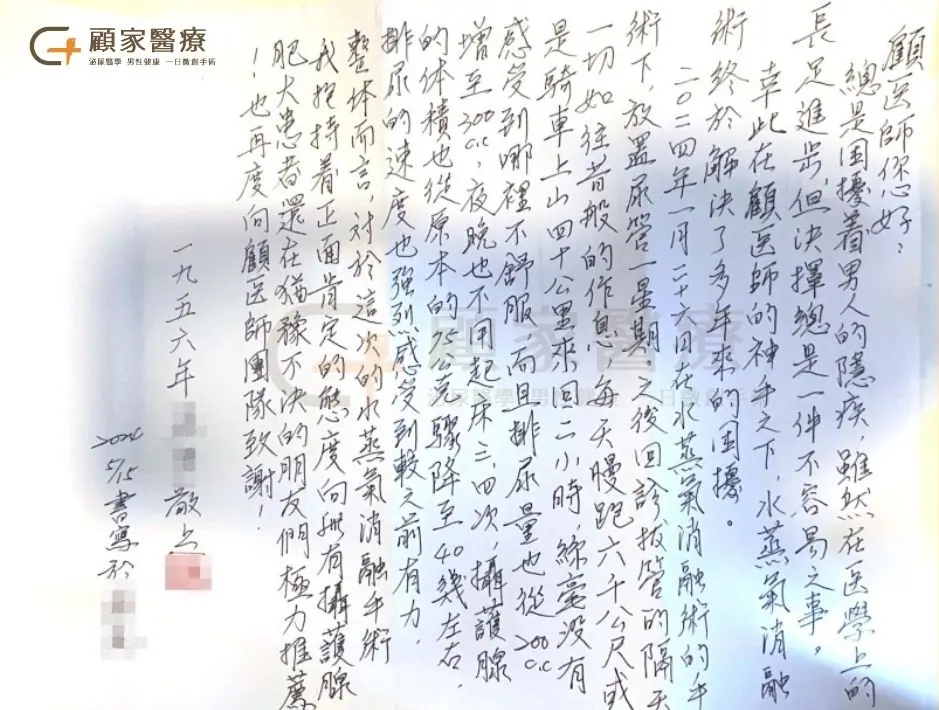 顧家醫療
泌尿醫學 男性健康 一日微創手術
顧医師你好：
總是困擾著男人的隱疾，雖然在医學上的
長足進步，但決擇總是一件不容易之事。
幸此在顧医師的神手之下，水蒸氣消融
術終於解決了多年來的困擾。
二〇二四年一月二十六日在水蒸氣消融術的手
術下，放置尿管一星期，之後回診拔管的隔天
一切如往昔般的作息，每天慢跑六千公尺或
是騎車上山四十公里來回二小時，絲毫沒有
感受到哪裡不舒服，而且排尿量也從200c.c
增至300c.c，夜晚也不用起床三、四次，攝護腺
的体積也從原本的75公克驟降至40幾左右，
排尿的速度也強烈感受到較之前有力，
整体而言，對於這次的水蒸氣消融手術
我抱持着正面肯定的態度向所有攝護腺
肥大患者還在猶豫不決的朋友們極力推薦
！也再度向顧医師團隊致謝！
一九五六年
敬上
2024
5/15書寫於
顧家醫療
泌尿醫學 男性健康 一日微創手術